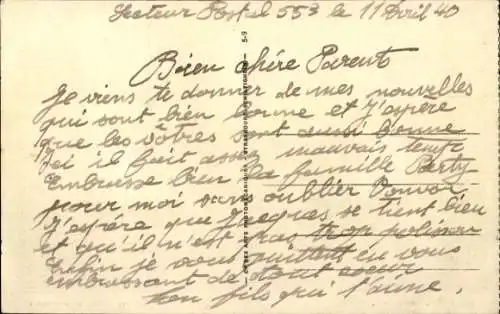 Secteur Postal 553 le 11 Avril 40
Bien chére Parents
Je viens te donner de mes nouvelles
qui sont bien bonne et J'espére
que les vôtres sont aussi bonne
Ici il fait assez mauvais temps
Embrasse bien la famille
pour moi sans oublier
J'espére que Jacques se tient bien
et qu'il n'est pas trop polisson
Enfin je vous quittent en vous
embrassant de tout coeur
ton fils qui t'aime.
5-9